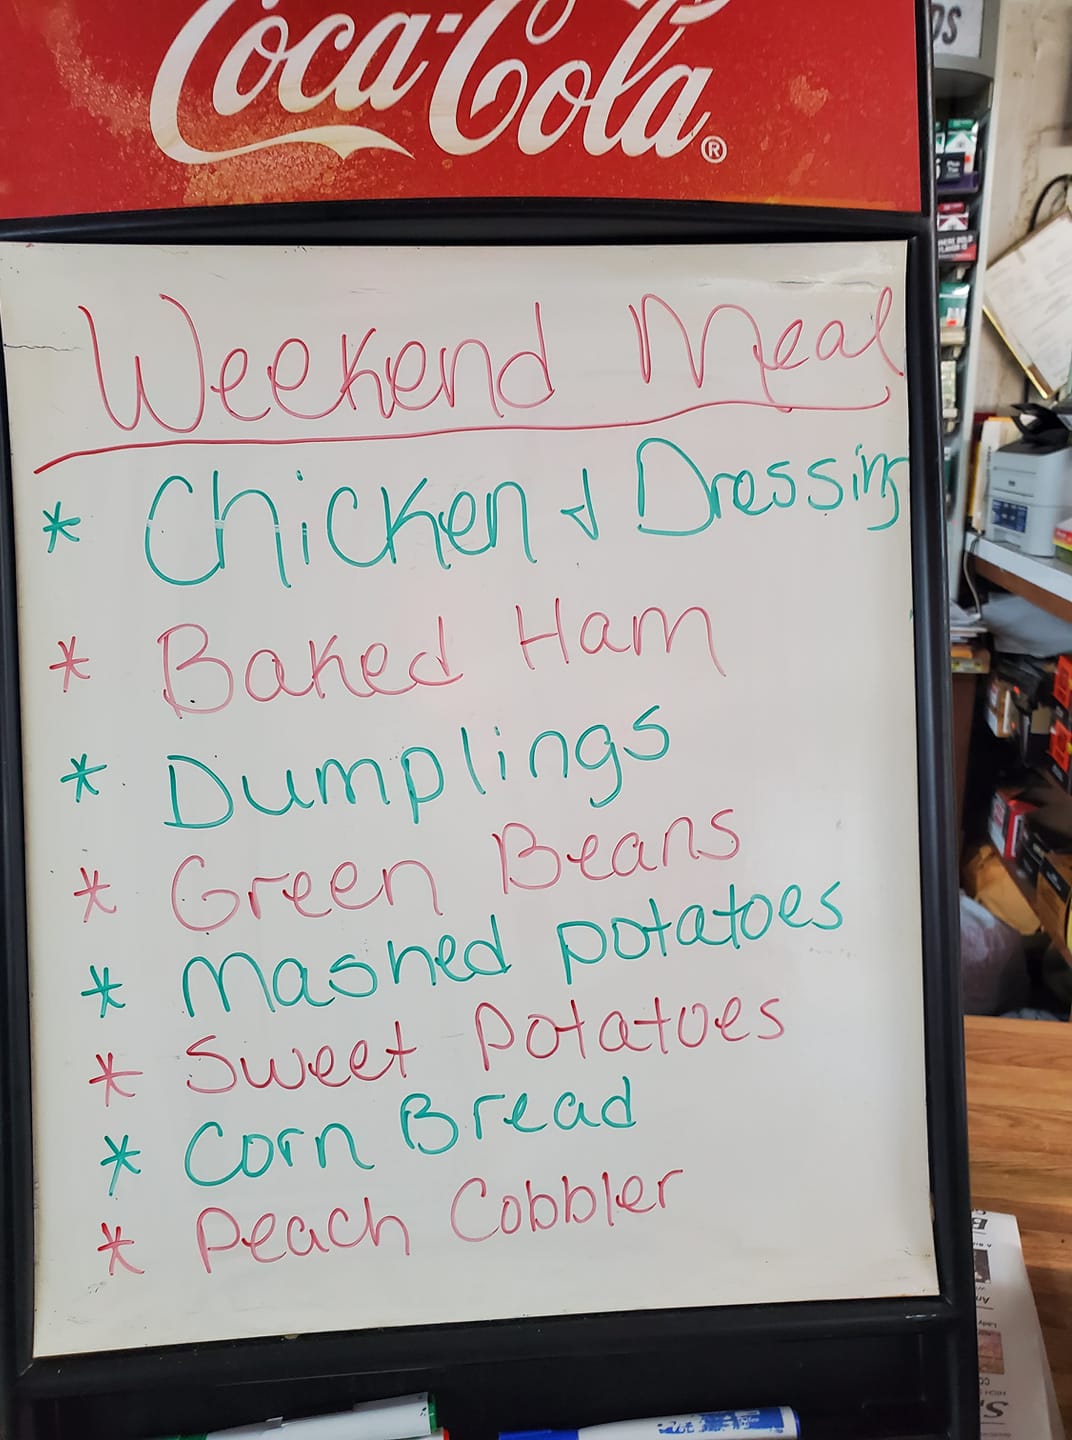 Coca-Cola®
Weekend Meal
* Chicken & Dressing
* Baked Ham
* Dumplings
* Green Beans
* Mashed potatoes
* Sweet Potatoes
* Corn Bread
* Peach Cobbler